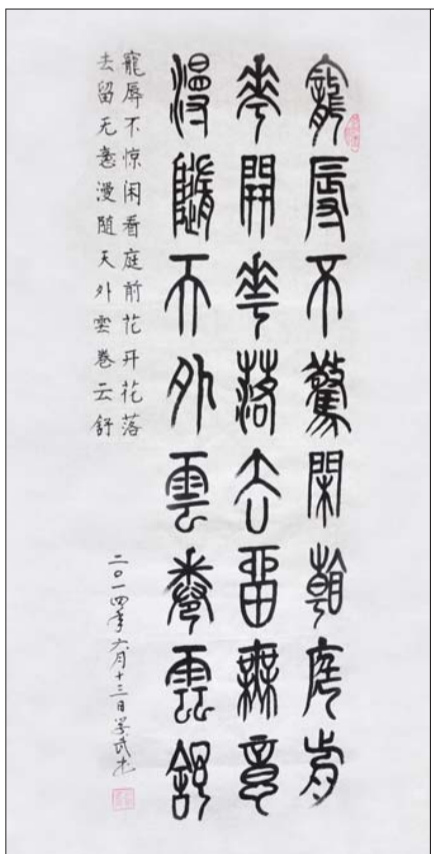 寵辱不驚閒看庭前
華開華落去留無意
漫隨天外雲卷雲舒
寵辱不惊闲看庭前花开花落
去留无意漫随天外雲卷云舒
二〇一四年六月十三日学武书